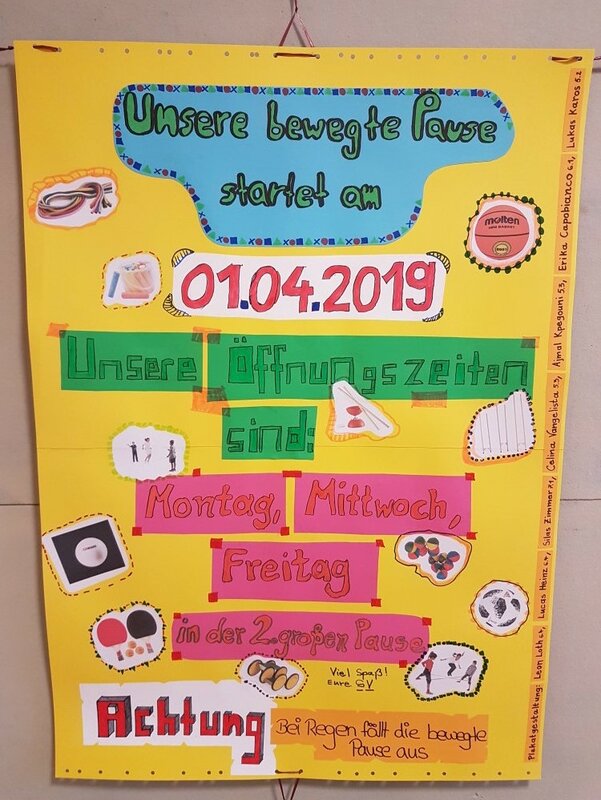 Unsere bewegte Pause
startet am
01.04.2019
molten
Unsere Öffnungszeiten
sind:
Montag, Mittwoch,
Freitag
in der 2. großen Pause
Viel Spaß!
Eure SV
Achtung
Bei Regen fällt die bewegte
Pause aus
Plakatgestaltung: Leon Loth 6.4, Lucas Heinz 6.4, Silas Zimmer 7.1, Celina Vangelista 5.3, Ajmal Kpegouni 5.3, Erika Capobianco 6.1, Lukas Karos 5.2